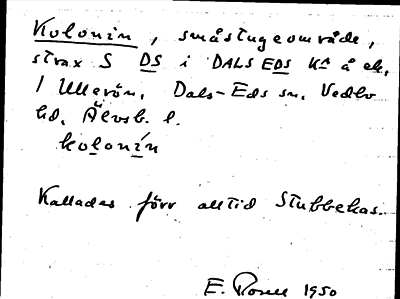 Kolonin, småstugeområde,
strax S DS i DALS EDS Kn å ek.
1 Ullerön. Dals-Eds sn. Vedbo
hd. Älvsb. l.
kolonín
Kallades förr alltid Stubbekas.
E. Rosell 1950